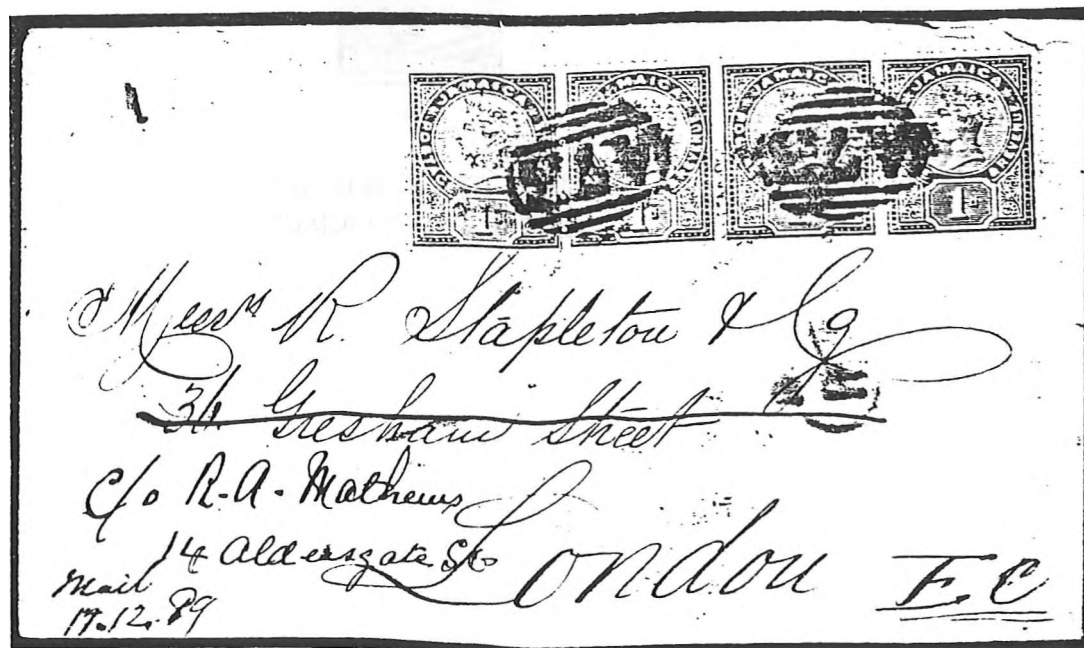 JAMAICA JAMAICA JAMAICA JAMAICA
REVENUE
1 1 1 1
Messrs R. Stapleton & Co
34 Gresham Street
c/o R. A. Mathews
14 Aldersgate St
London E.C
Mail
17.12.89